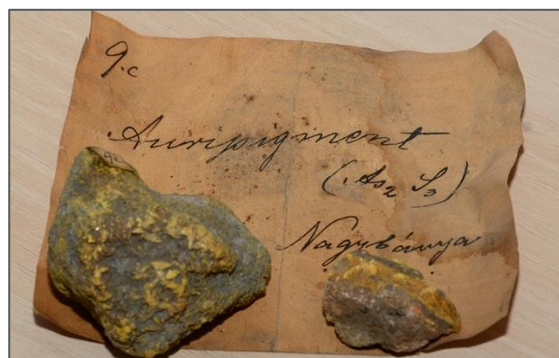 9.c
Auripigment
(As₂ S₃)
Nagybánya